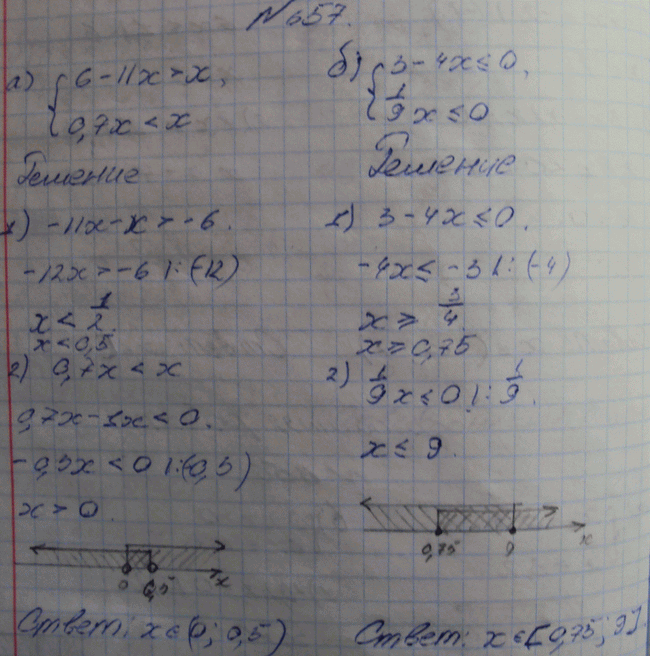 №657.
а) { 6-11x > x,
0,7x < x
Решение
1) -11x-x > -6.
-12x > -6 |:(-12)
x < 1/2
x < 0,5
2) 0,7x < x
0,7x-1x < 0.
-0,3x < 0 |:(0,3)
x > 0
0 0,5 x
Ответ: x∈(0; 0,5)
б) { 3-4x ≤ 0,
1/9 x ≤ 0
Решение
1) 3-4x ≤ 0,
-4x ≤ -3 |: (-4)
x ≥ 3/4
x ≥ 0,75
2) 1/9 x ≤ 0 |: 1/9.
x ≤ 9.
0,75 9 x
Ответ: x∈[0,75; 9].